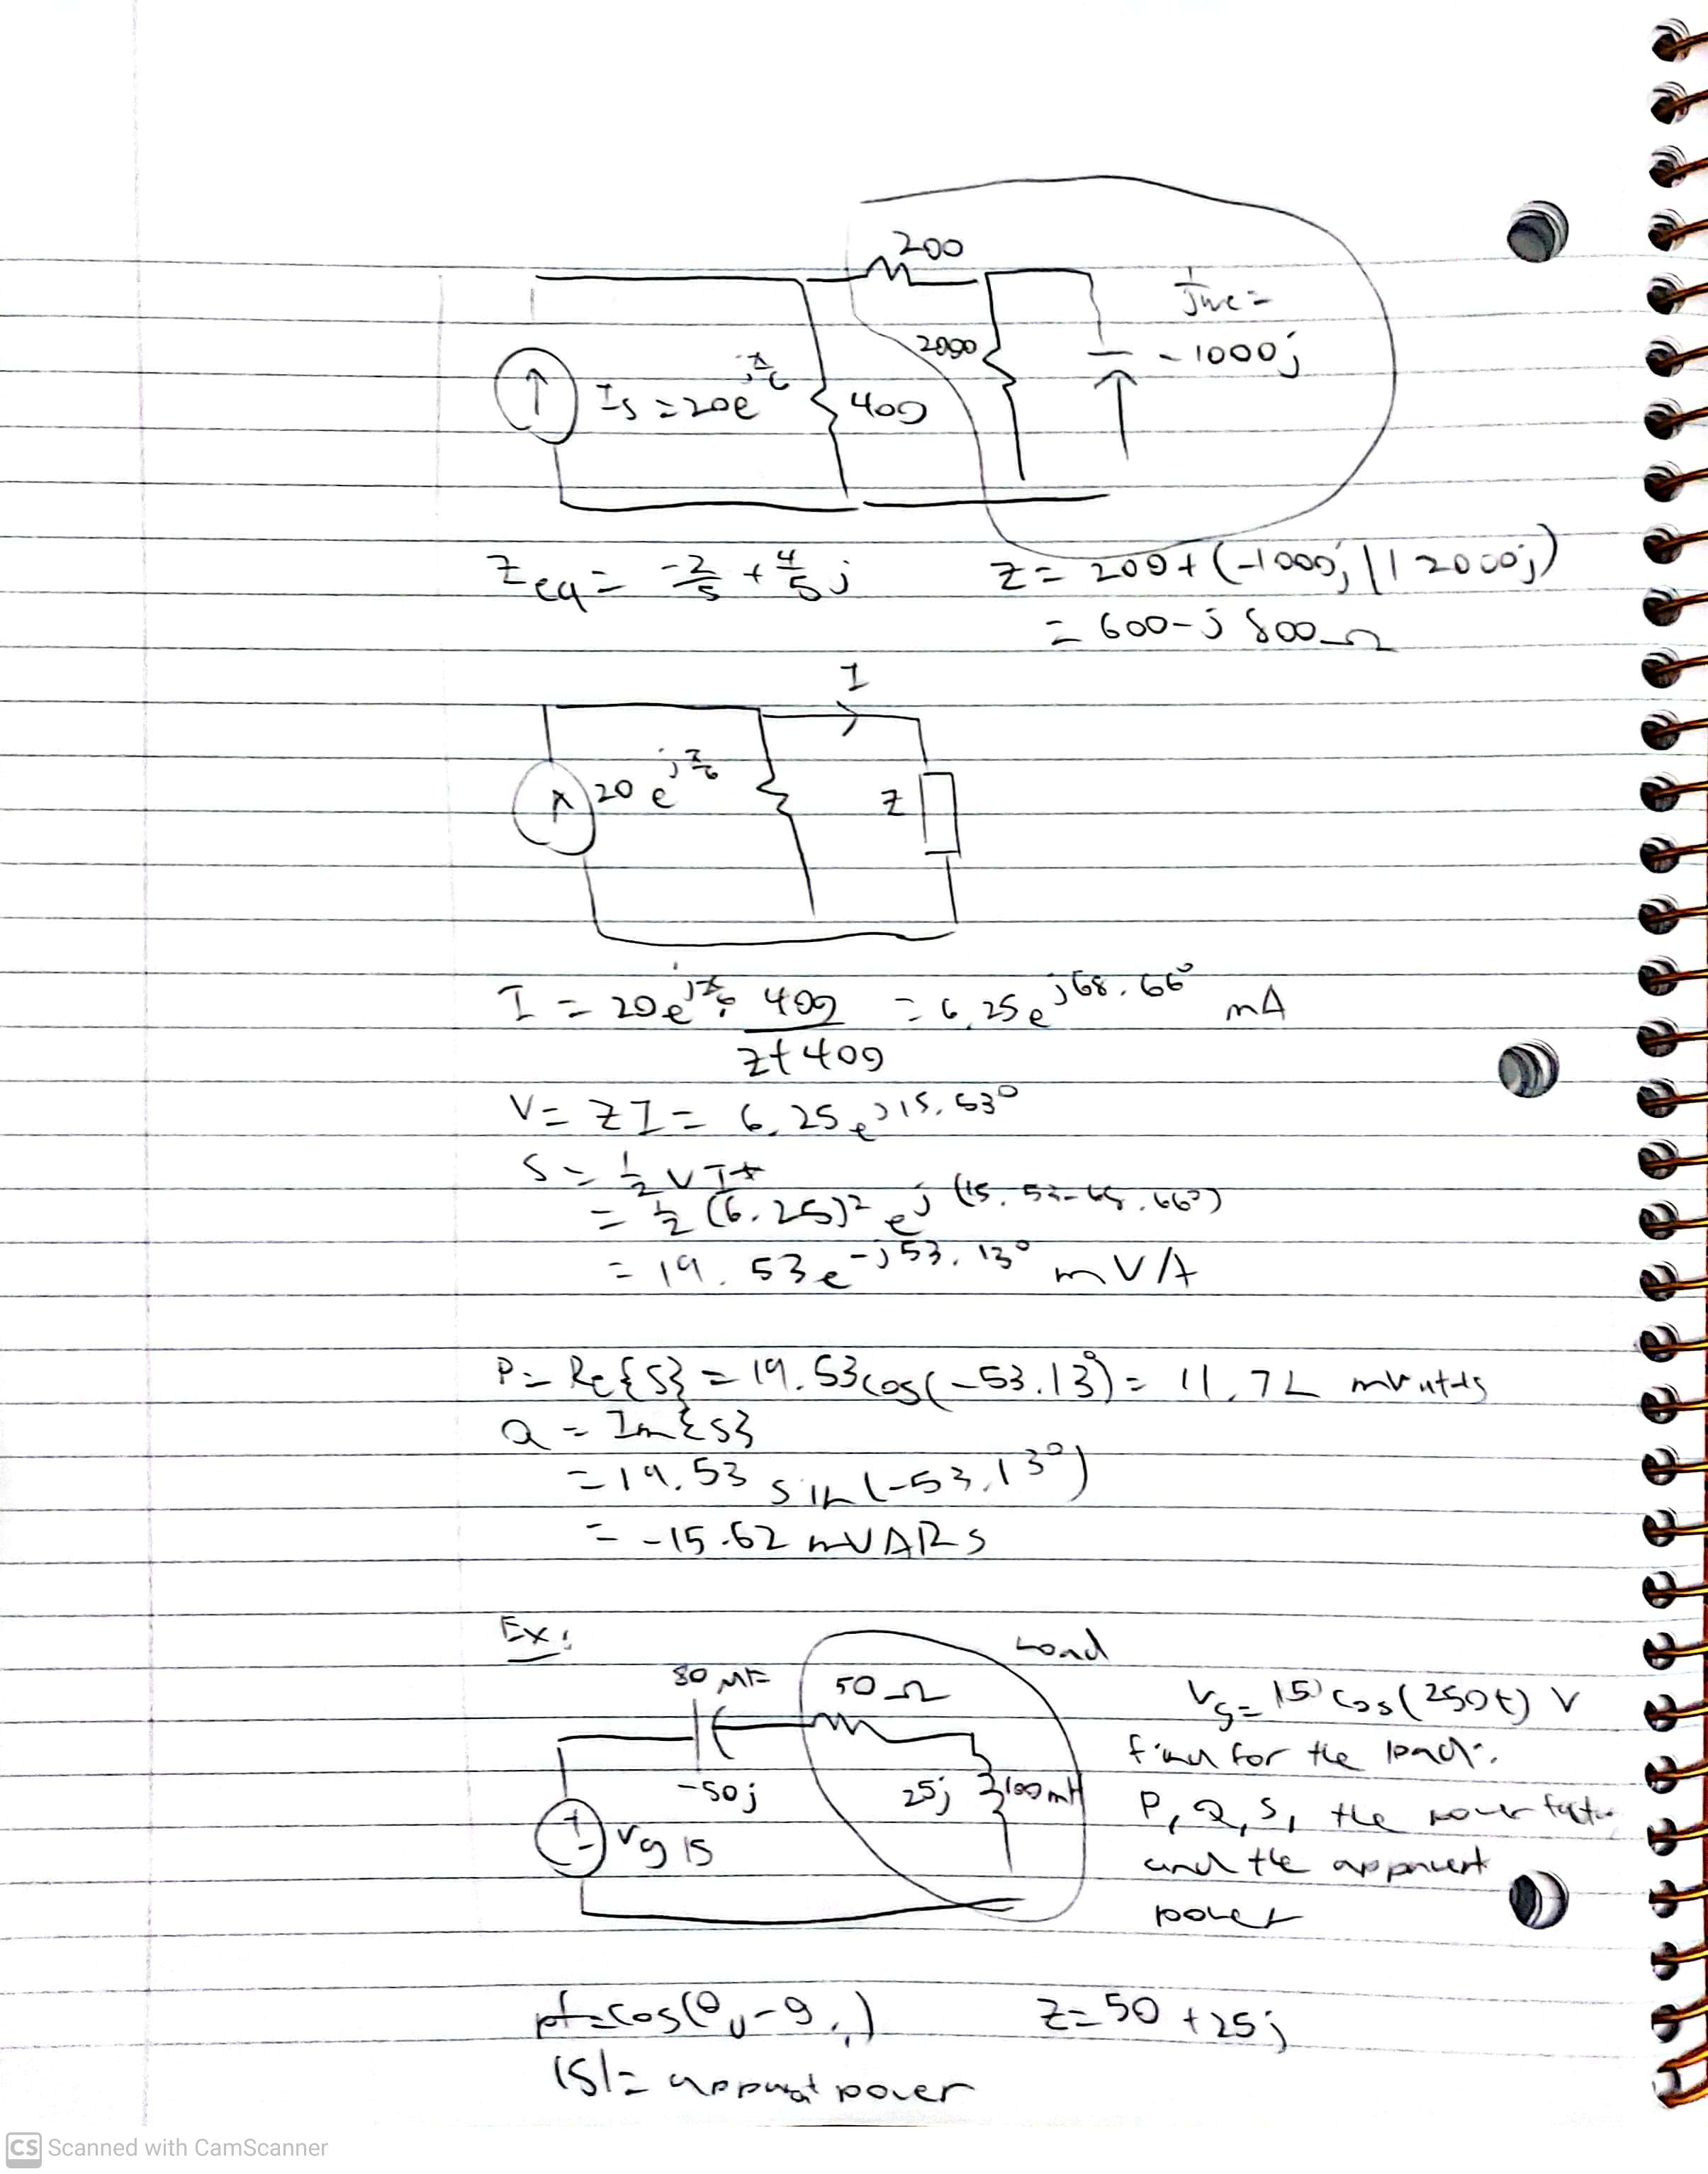 200
1/jωc =
2000
-1000j
Is = 20e^(jπ/6)
400
Zeq = -2/5 + 4/5 j
Z = 200 + (-1000j || 2000j)
= 600 - j 800 Ω
I
20 e^(jπ/6)
Z
I = 20e^(jπ/6) · 400/(Z+400) = 6.25e^(j68.66°) mA
V = ZI = 6.25e^(j15.53°)
S = 1/2 VI*
= 1/2 (6.25)² e^(j(15.53-68.66°))
= 19.53e^(-j53.13°) mVA
P = Re{S} = 19.53cos(-53.13°) = 11.72 mwatts
Q = Im{S}
= 19.53 sin(-53.13°)
= -15.62 mVARs
Ex:
Load
80 MF
50Ω
Vg = 15 cos(250t) V
find for the load:
-50j
25j
100mH
P, Q, S, the power factor
Vg 15
and the apparent
power
pf = cos(θv-θi)
Z = 50 + 25j
|S| = apparent power
CS Scanned with CamScanner